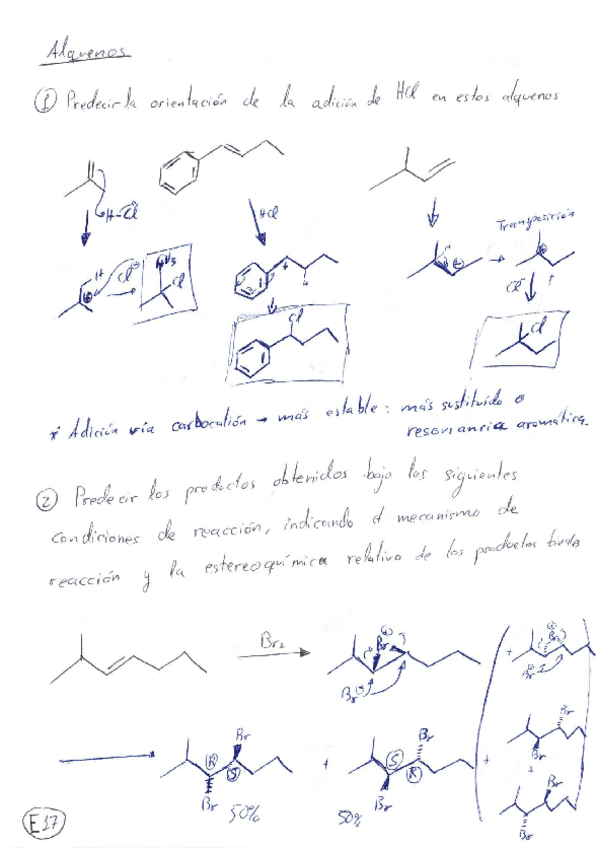 Alquenos
① Predecir la orientación de la adición de HCl en estos alquenos
H-Cl
HCl
Transposición
H
Cl⊖
CH₃
Cl
⊕
Cl⁻
Cl
Cl
* Adición vía carbocatión → más estable: más sustituído o
resonancia aromática.
② Predecir los productos obtenidos bajo las siguientes
condiciones de reacción, indicando el mecanismo de
reacción y la estereoquímica relativa de los productos
Br₂
Br
Br⊖
Br
Br⊖
Br
Br
Br
Br
R
S
+
S
R
+
Br
Br
+
Br
Br
50%
50%
E17